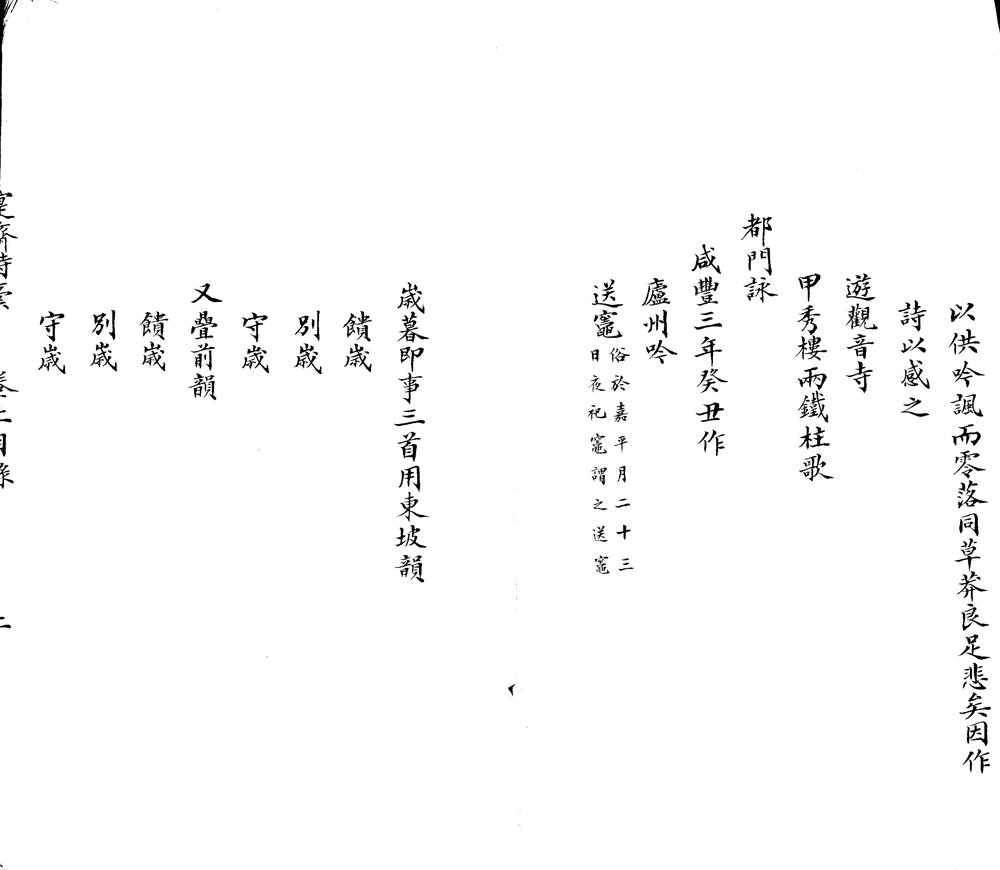 以供吟諷而零落同草莽良足悲矣因作
詩以感之
遊觀音寺
甲秀樓兩鐵柱歌
都門詠
咸豐三年癸丑作
廬州吟
送竈
俗於嘉平月二十三
日夜祀竈謂之送竈
歲暮即事三首用東坡韻
饋歲
別歲
守歲
又疊前韻
饋歲
別歲
守歲
目錄
二